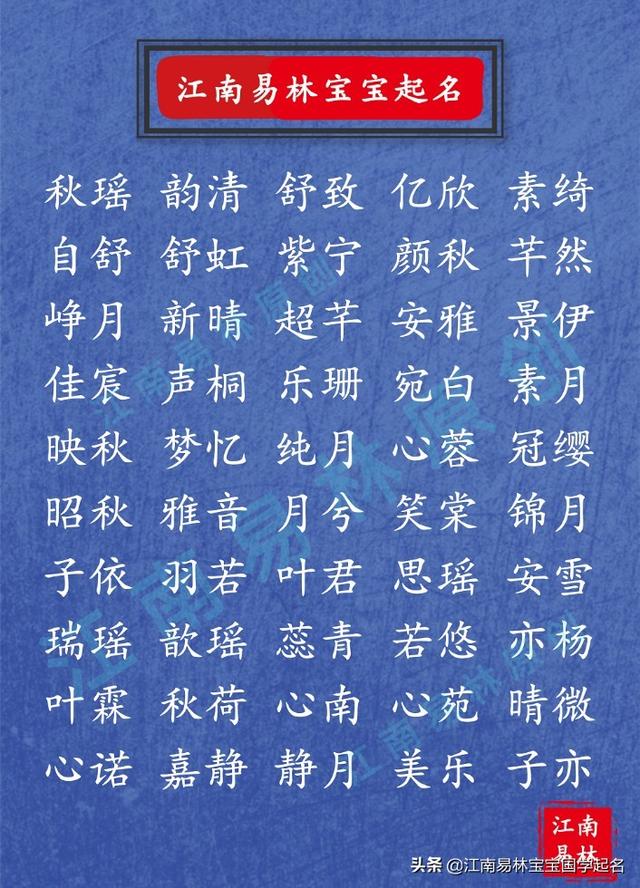 江南易林宝宝起名
秋瑶 韵清 舒致 亿欣 素绮
自舒 舒虹 紫宁 颜秋 芊然
峥月 新晴 超芊 安雅 景伊
佳宸 声桐 乐珊 宛白 素月
映秋 梦忆 纯月 心蓉 冠缨
昭秋 雅音 月兮 笑棠 锦月
子依 羽若 叶君 思瑶 安雪
瑞瑶 歆瑶 蕊青 若悠 亦杨
叶霖 秋荷 心南 心苑 晴微
心诺 嘉静 静月 美乐 子亦
江南易林原创
江南易林原创
江南易林原创
江南
易林
头条 @江南易林宝宝国学起名